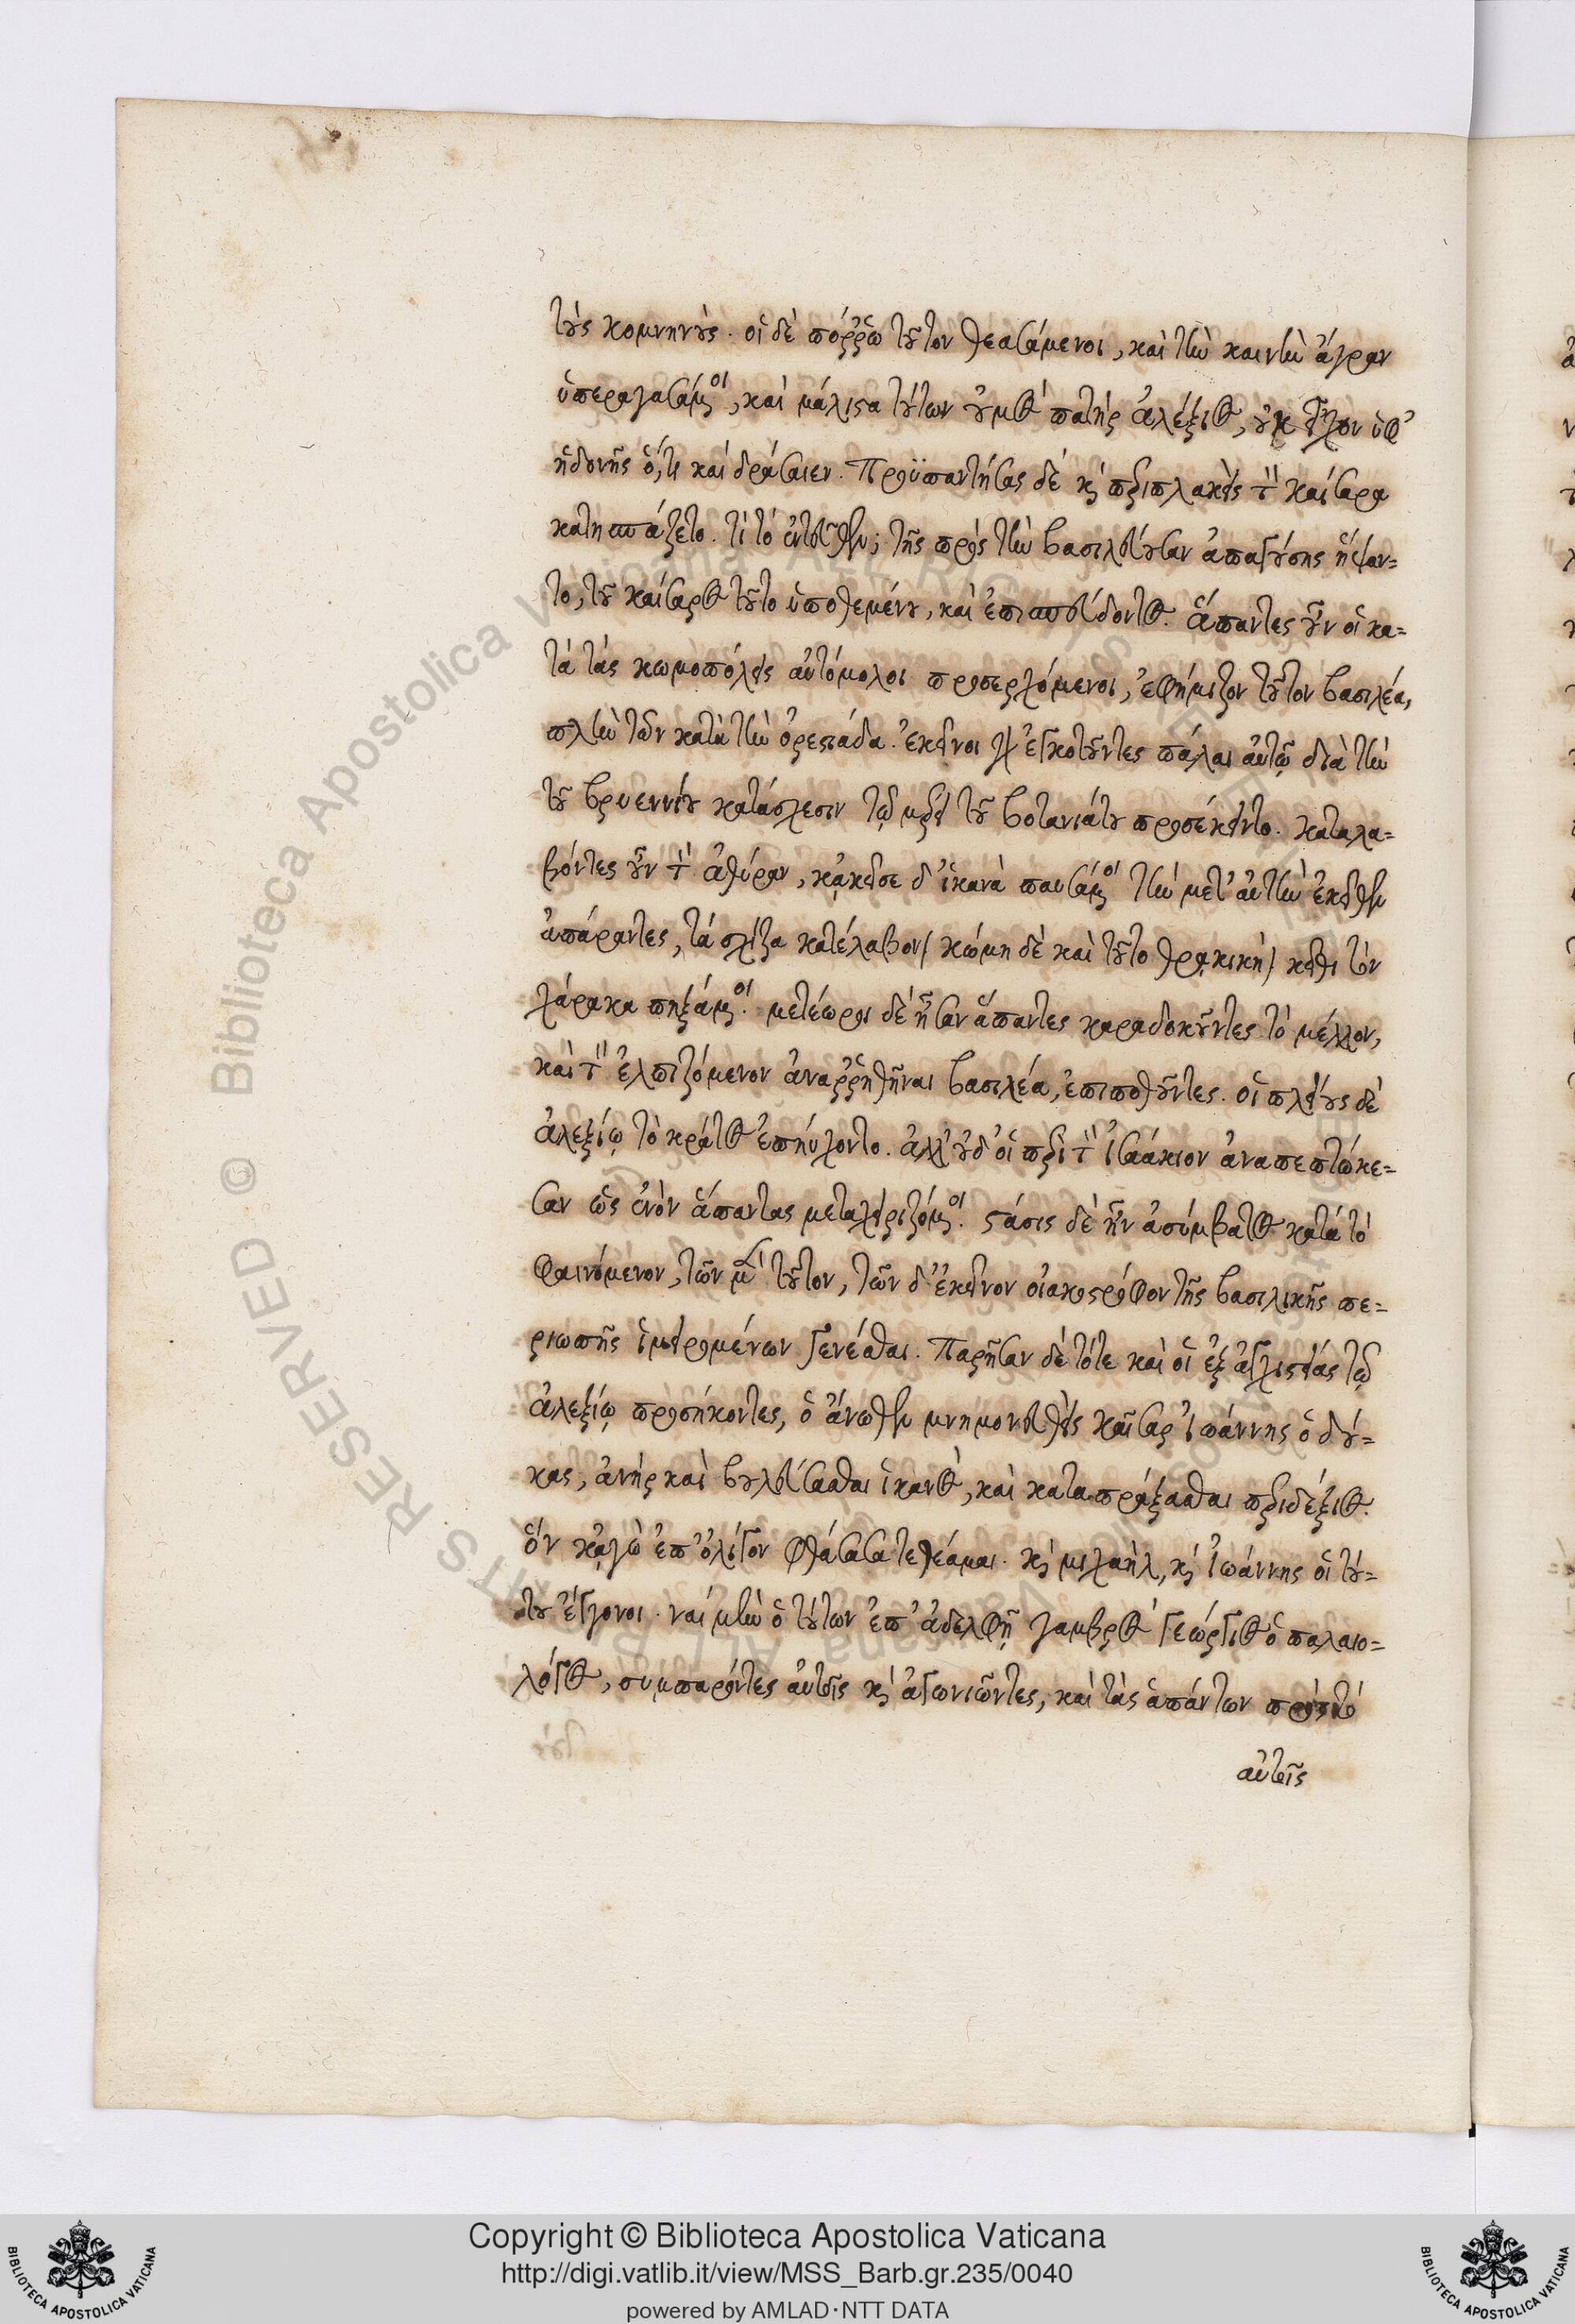 τοὺς κομνηνούς. οἱ δὲ πόῤῥω τοῦτον θεασάμενοι, καὶ τὴν καινὴν ἄγραν
ὑπεραγασάμενοι, καὶ μάλιστα τούτων οὑμὸς πατὴρ ἀλέξιος, οὐκ εἶχον ὑφ'
ἡδονῆς ὅ,τι καὶ δράσαιεν. Προϋπαντήσας δὲ καὶ περιπλακεὶς τὸν καίσαρα
κατησπάζετο. τί τὸ ἐντεῦθεν; τῆς πρὸς τὴν βασιλεύουσαν ἀπαγούσης ἥψαν=
το, τοῦ καίσαρος τοῦτο ὑποθεμένου, καὶ ἐπισπεύδοντος. ἅπαντες οὖν οἱ κα=
τὰ τὰς κωμοπόλεις αὐτόμολοι προσερχόμενοι, ἐφήμιζον τοῦτον βασιλέα,
πλὴν τῶν κατὰ τὴν ὀρεστιάδα. ἐκεῖνοι γὰρ ἐγκοτοῦντες πάλαι αὐτῷ διὰ τὴν
τοῦ βρυεννίου κατάσχεσιν τῷ μέρει τοῦ βοτανιάτου προσέκειντο. καταλα=
βόντες οὖν τὸν ἀθύραν, κἀκεῖσε δ' ἱκανὰ παυσάμενοι τὴν μετ' αὐτὴν ἐκεῖθεν
ἀπάραντες, τὰ σχίζα κατέλαβον (κώμη δὲ καὶ τοῦτο θρᾳκικὴ) κεῖθι τὸν
χάρακα πηξάμενοι. μετέωροι δὲ ἦσαν ἅπαντες καραδοκοῦντες τὸ μέλλον,
καὶ τὸν ἐλπιζόμενον ἀναῤῥηθῆναι βασιλέα, ἐπιποθοῦντες. οἱ πλείους δὲ
ἀλεξίῳ τὸ κράτος ἐπηύχοντο. ἀλλ' οὐδ' οἱ περὶ τὸν ἰσαάκιον ἀναπεπτώκε=
σαν ὡς ἐνὸν ἅπαντας μεταχειριζόμενοι. στάσις δὲ ἦν ἀσύμβατος κατὰ τὸ
φαινόμενον, τῶν μὲν τοῦτον, τῶν δ' ἐκεῖνον οἰακοστρόφον τῆς βασιλικῆς πε=
ριωπῆς ἱμειρομένων γενέσθαι. Παρῆσαν δὲ τότε καὶ οἱ ἐξ ἀγχιστείας τῷ
ἀλεξίῳ προσήκοντες, ὁ ἄνωθεν μνημονευθεὶς καῖσαρ ἰωάννης ὁ δού=
κας, ἀνὴρ καὶ βουλεύσασθαι ἱκανὸς, καὶ καταπράξασθαι περιδέξιος.
ὃν κἀγὼ ἐπ' ὀλίγον φθάσασα τεθέαμαι. καὶ μιχαὴλ, καὶ ἰωάννης οἱ τού=
του ἔγγονοι. ναὶ μὴν ὁ τούτων ἐπ' ἀδελφῇ γαμβρὸς γεώργιος ὁ παλαιο=
λόγος, συμπαρόντες αὐτοῖς καὶ ἀγωνιῶντες, καὶ τὰς ἁπάντων πρὸς τὸ
αὐτοῖς
Copyright © Biblioteca Apostolica Vaticana
http://digi.vatlib.it/view/MSS_Barb.gr.235/0040
powered by AMLAD·NTT DATA